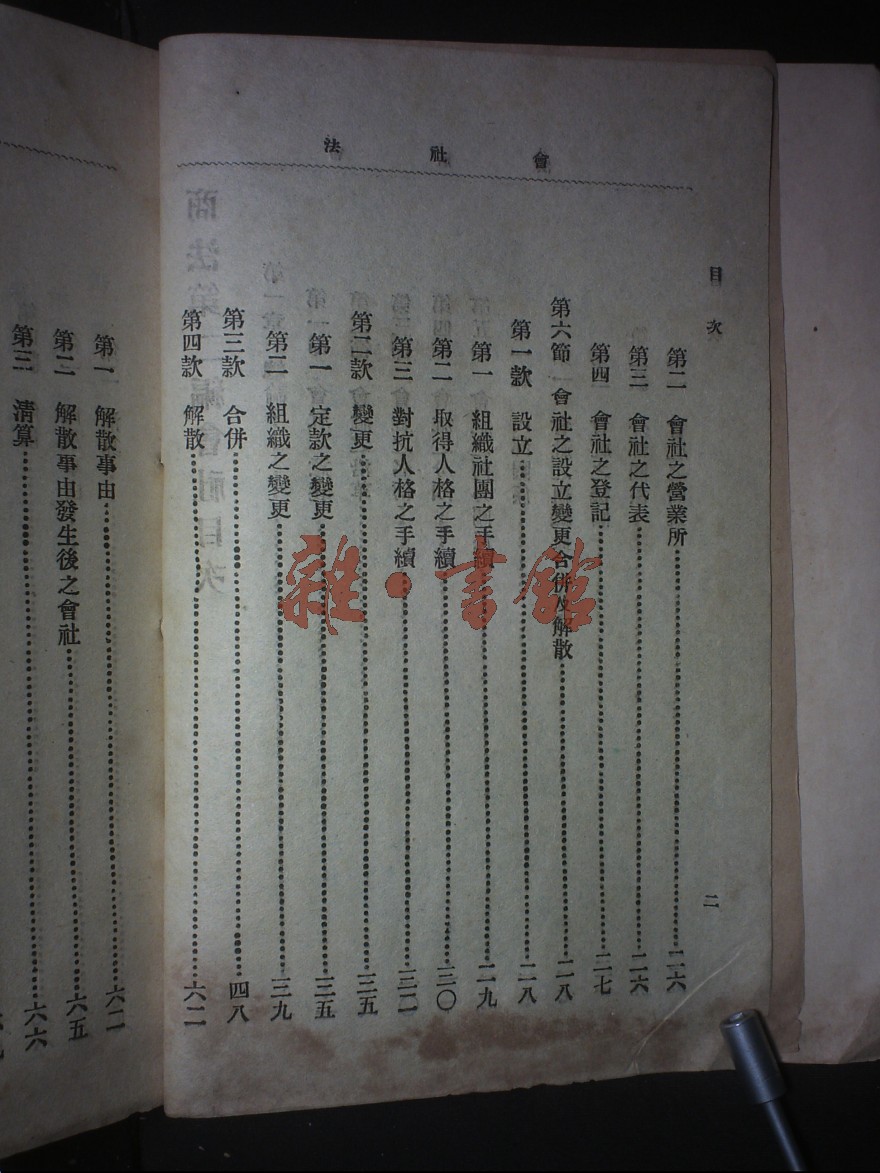 會社法
目次
二
第二 會社之營業所……二六
第三 會社之代表……二六
第四 會社之登記……二七
第六節 會社之設立變更合併及解散……二八
第一款 設立……二八
第一 組織社團之手續……二九
第二 取得人格之手續……三〇
第三 對抗人格之手續……三二
第二款 變更……三五
第一 定款之變更……三五
第二 組織之變更……三九
第三款 合併……四八
第四款 解散……六二
第一 解散事由……六二
第二 解散事由發生後之會社……六五
第三 清算……六六
雜·書館